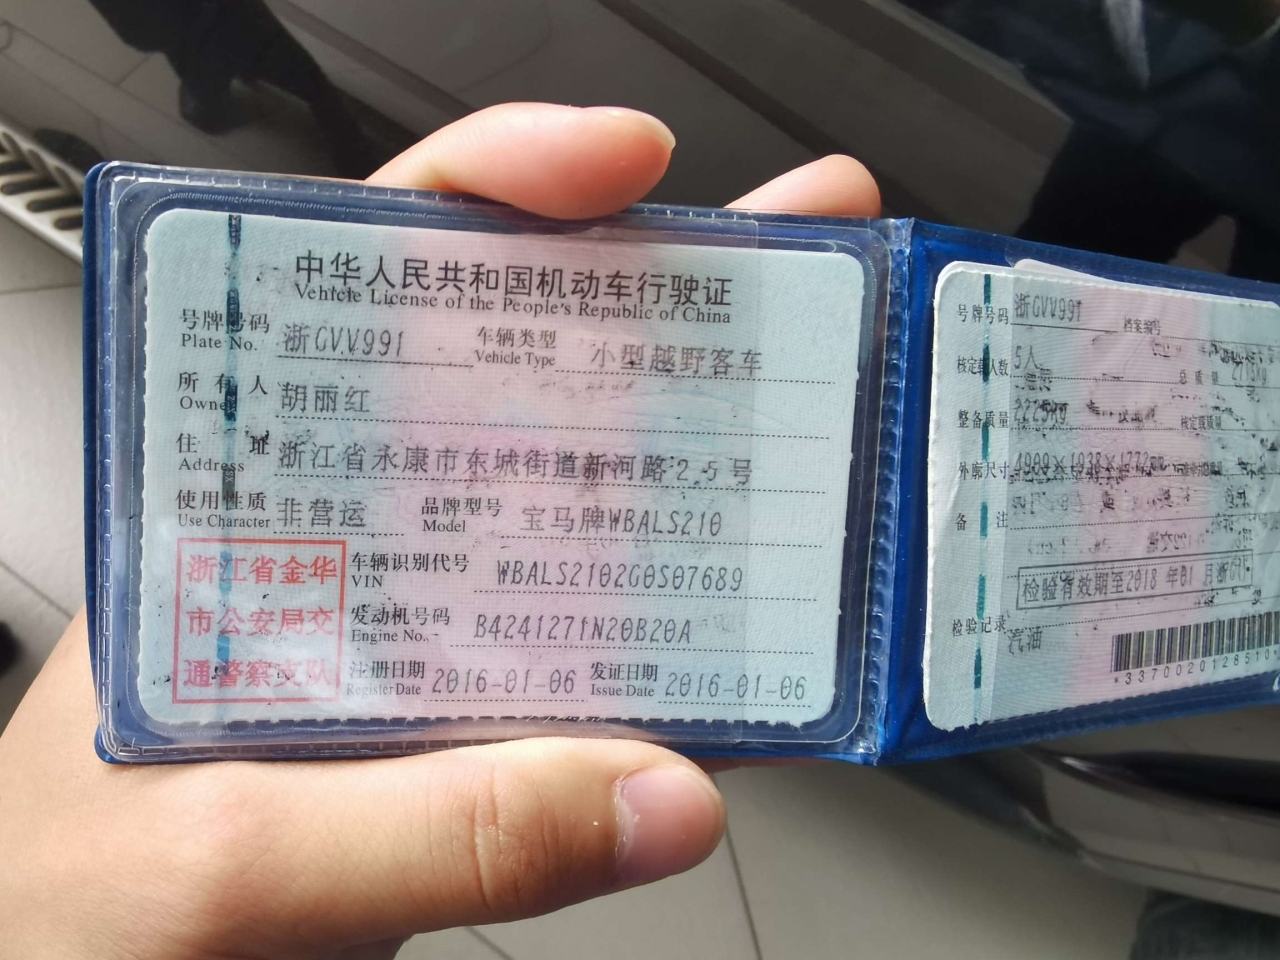 中华人民共和国机动车行驶证
Vehicle License of the People's Republic of China
号牌号码 浙GVV991 车辆类型 小型越野客车
Plate No. Vehicle Type
所有人 胡丽红
Owner
住址 浙江省永康市东城街道新河路25号
Address
使用性质 非营运 品牌型号 宝马牌WBALS210
Use Character Model
浙江省金华
市公安局交
通警察支队
车辆识别代号 WBALS2102G0S07689
VIN
发动机号码 B4241271N20B20A
Engine No.
注册日期 2016-01-06 发证日期 2016-01-06
Register Date Issue Date
号牌号码 浙GVV991 档案编号
核定载人数 5人 总质量
整备质量 2225kg 核定载质量
外廓尺寸
备注
检验有效期至2018年01月
检验记录
汽油